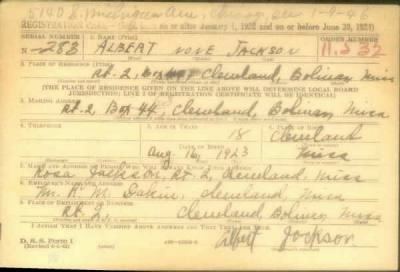 5140 S. Michigan Ave, Chicago,
REGISTRATION CARD—(Men born on or after January 1, 1922 and on or before June 30, 1924)
SERIAL NUMBER 1. NAME (Print) ORDER NUMBER
N-283 ALBERT NONE JACKSON
2. PLACE OF RESIDENCE (Print)
Rt-2, Box 44, Cleveland, Bolivar, Miss
(THE PLACE OF RESIDENCE GIVEN ON THE LINE ABOVE WILL DETERMINE LOCAL BOARD
JURISDICTION; LINE 2 OF REGISTRATION CERTIFICATE WILL BE IDENTICAL)
3. MAILING ADDRESS
Rt-2, Box 44, Cleveland, Bolivar, Miss
4. TELEPHONE 5. AGE IN YEARS 6. PLACE OF BIRTH
18 Cleveland
DATE OF BIRTH
Aug 16, 1923 Miss
Rosa Jackson, Rt. 2, Cleveland, Miss
8. EMPLOYER'S NAME AND ADDRESS
Mr. R. M. Cleveland, Miss
9. PLACE OF EMPLOYMENT OR BUSINESS
Rt. 2 Cleveland, Bolivar, Miss
I AFFIRM THAT I HAVE VERIFIED ABOVE ANSWERS AND THAT THEY ARE TRUE.
D. S. S. Form 1
Albert Jackson